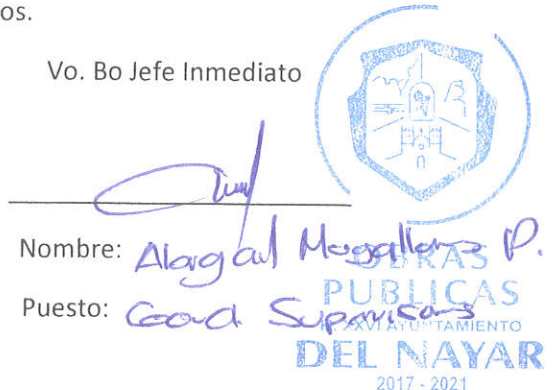 os.
Vo. Bo Jefe Inmediato
Nombre: Magallanes P.
Puesto: Coord Supervisores
OBRAS
PUBLICAS
XXVI AYUNTAMIENTO
DEL NAYAR
2017 - 2021